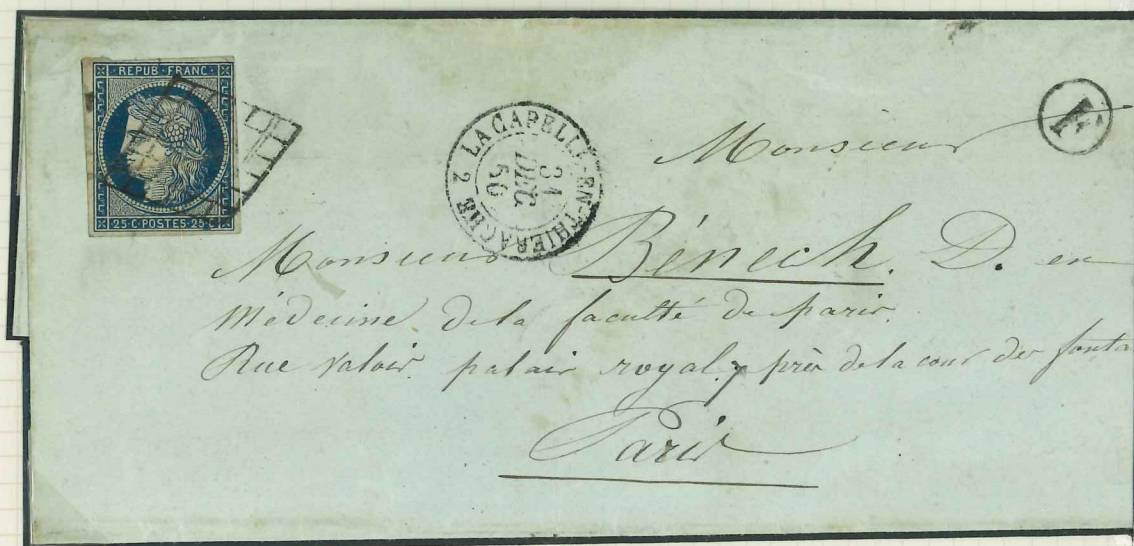 REPUB·FRANC·
25·C·POSTES·25·C
LA CAPELLE-EN-THIERACHE 2
31
DEC
50
Monsieur
Monsieur Bénech. D. en
Médecine de la faculté de paris.
Rue Valois palais royal, 7 près de la cour des fonta
Paris